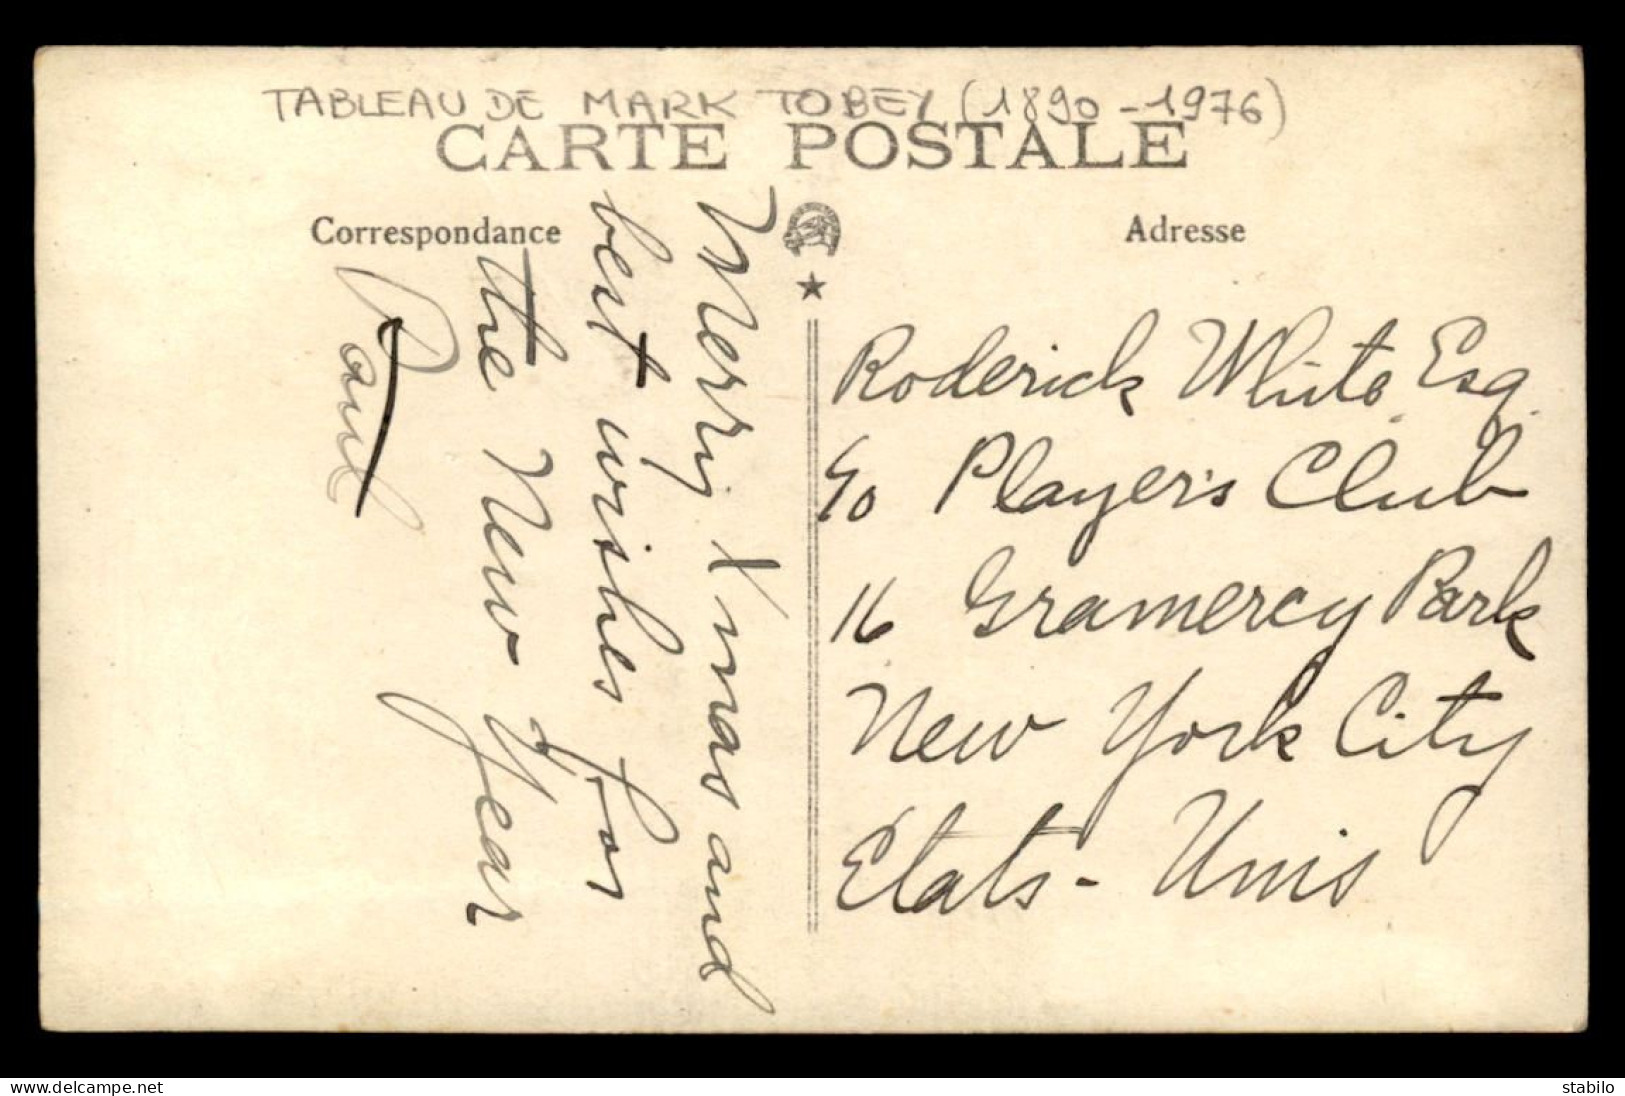 TABLEAU DE MARK TOBEY (1890-1976)
CARTE POSTALE
Correspondance
Adresse
Merry Xmas and
best wishes for
the New Year
Paul
Roderick White Esq.
c/o Player's Club
16 Gramercy Park
New York City
Etats-Unis
www.delcampe.net
stabilo